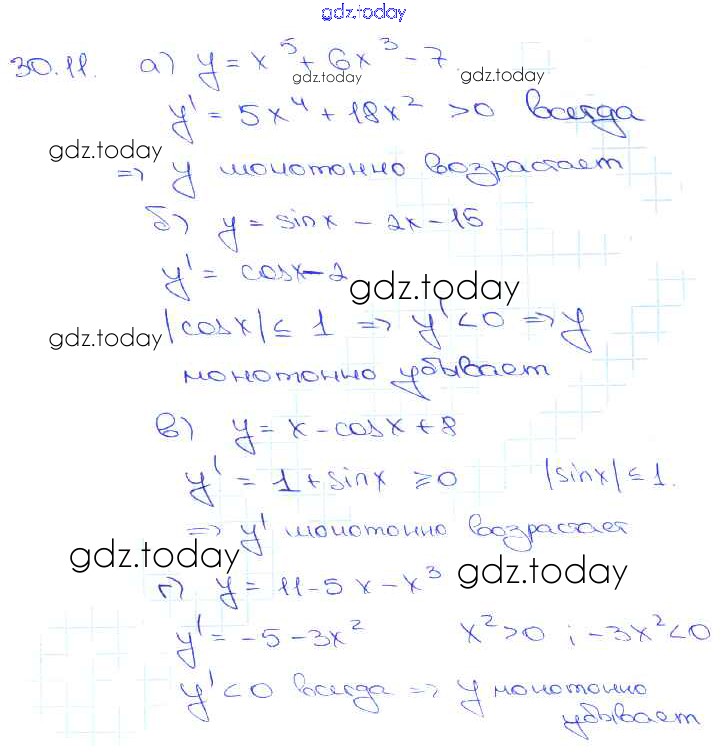 gdz.today
30.11. а) y = x⁵ + 6x³ - 7
gdz.today gdz.today
y' = 5x⁴ + 18x² > 0 всегда
gdz.today
⇒ y монотонно возрастает
б) y = sinx - 2x - 15
y' = cosx - 2
gdz.today
gdz.today |cosx| ≤ 1 ⇒ y' < 0 ⇒ y
монотонно убывает
в) y = x - cosx + 8
y' = 1 + sinx ≥ 0 |sinx| ≤ 1.
⇒ y' монотонно возрастает
gdz.today gdz.today
г) y = 11 - 5x - x³
y' = -5 - 3x² x² > 0 ; -3x² < 0
y' < 0 всегда ⇒ y монотонно
убывает